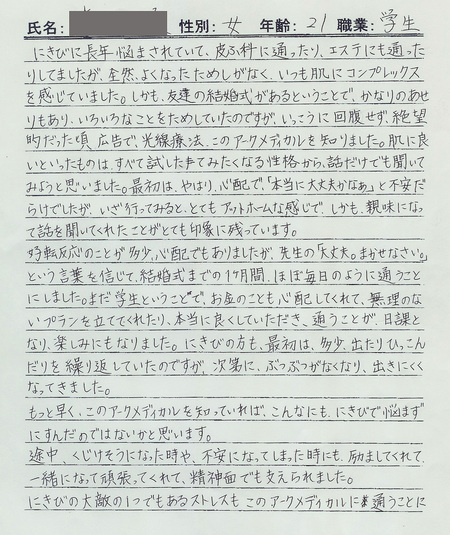 氏名: 性別: 女 年齢: 21 職業: 学生
にきびに長年悩まされていて、皮ふ科に通ったり、エステにも通った
りしてましたが、全然よくなったためしがなく、いつも肌にコンプレックス
を感じていました。しかも、友達の結婚式があるということで、かなりのあせ
りもあり、いろいろなことをためしていたのですが、いっこうに回復せず、絶望
的だった頃、広告で、光線療法、このアークメディカルを知りました。肌に良
いといったものは、すべて試してみたくなる性格から、話だけでも聞いて
みようと思いました。最初は、やはり、心配で、「本当に大丈夫かなぁ」と不安だ
らけでしたが、いざ行ってみると、とてもアットホームな感じで、しかも、親味になっ
て話を聞いてくれたことがとても印象に残っています。
好転反応のことが多少、心配でもありましたが、先生の「大丈夫。まかせなさい。」
という言葉を信じて、結婚式までの1ヶ月間、ほぼ毎日のように通うこと
にしました。まだ学生ということで、お金のことも心配してくれて、無理のな
いプランを立ててくれたり、本当に良くしていただき、通うことが、日課と
なり、楽しみにもなりました。にきびの方も、最初は、多少、出たりひっこん
だりを繰り返していたのですが、次第に、ぶつぶつがなくなり、出きにくく
なってきました。
もっと早く、このアークメディカルを知っていれば、こんなにも、にきびで悩まず
にすんだのではないかと思います。
途中、くじけそうになった時や、不安になってしまった時にも、励ましてくれて、
一緒になって頑張ってくれて、精神面でも支えられました。
にきびの大敵の1つでもあるストレスも このアークメディカルに通うことに